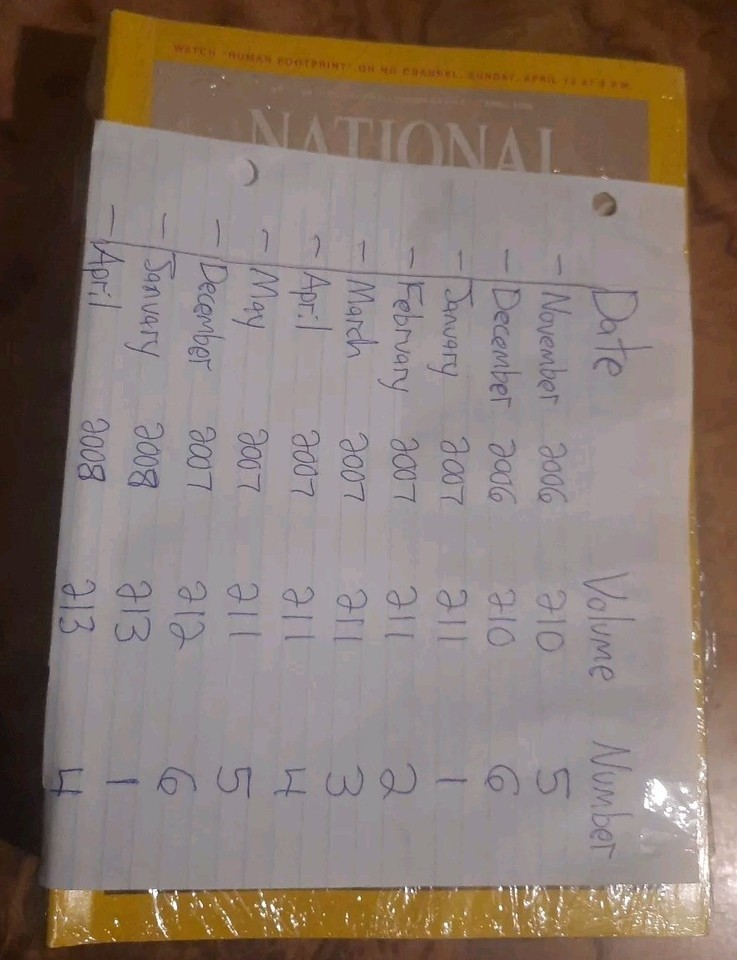 WATCH "HUMAN FOOTPRINT" ON NG CHANNEL, SUNDAY, APRIL 13 AT 9 P.M.
NATIONAL
Date Volume Number
- November 2006 210 5
- December 2006 210 6
- January 2007 211 1
- February 2007 211 2
- March 2007 211 3
- April 2007 211 4
- May 2007 211 5
- December 2007 212 6
- January 2008 213 1
- April 2008 213 4